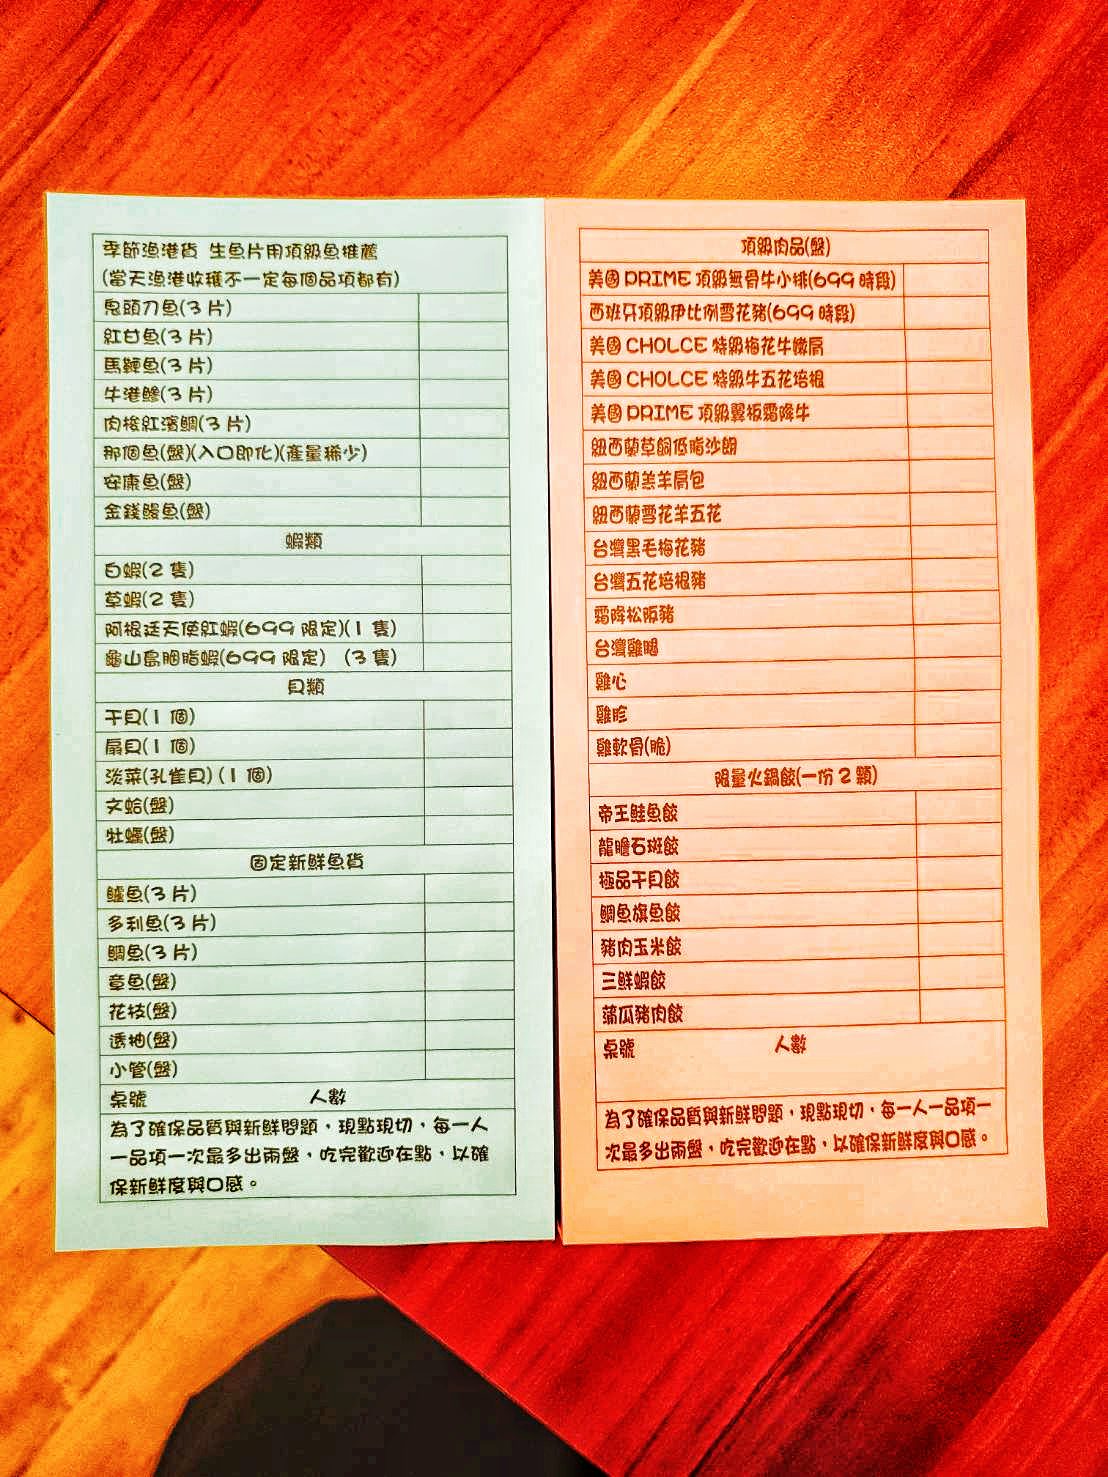 季節漁港貨 生魚片用頂級魚推薦
(當天漁港收穫不一定每個品項都有)
鬼頭刀魚(3片)
紅甘魚(3片)
馬鞭魚(3片)
牛港鰺(3片)
肉梭紅濱鯛(3片)
那個魚(盤)(入口即化)(產量稀少)
安康魚(盤)
金錢鰻魚(盤)
蝦類
白蝦(2隻)
草蝦(2隻)
阿根廷天使紅蝦(699限定)(1隻)
龜山島胭脂蝦(699限定) (3隻)
貝類
干貝(1個)
扇貝(1個)
淡菜(孔雀貝)(1個)
文蛤(盤)
牡蠣(盤)
固定新鮮魚貨
鱸魚(3片)
多利魚(3片)
鯛魚(3片)
章魚(盤)
花枝(盤)
透抽(盤)
小管(盤)
桌號 人數
為了確保品質與新鮮問題，現點現切，每一人
一品項一次最多出兩盤，吃完歡迎在點，以確
保新鮮度與口感。
頂級肉品(盤)
美國 PRIME 頂級無骨牛小排(699時段)
西班牙頂級伊比例雪花豬(699時段)
美國 CHOLCE 特級梅花牛嫩肩
美國 CHOLCE 特級牛五花培根
美國 PRIME 頂級翼板霜降牛
紐西蘭草飼低脂沙朗
紐西蘭羔羊肩包
紐西蘭雪花羊五花
台灣黑毛梅花豬
台灣五花培根豬
霜降松阪豬
台灣雞腿
雞心
雞胗
雞軟骨(脆)
限量火鍋餃(一份2顆)
帝王鮭魚餃
龍膽石斑餃
極品干貝餃
鯛魚旗魚餃
豬肉玉米餃
三鮮蝦餃
蒲瓜豬肉餃
桌號 人數
為了確保品質與新鮮問題，現點現切，每一人一品項一
次最多出兩盤，吃完歡迎在點，以確保新鮮度與口感。